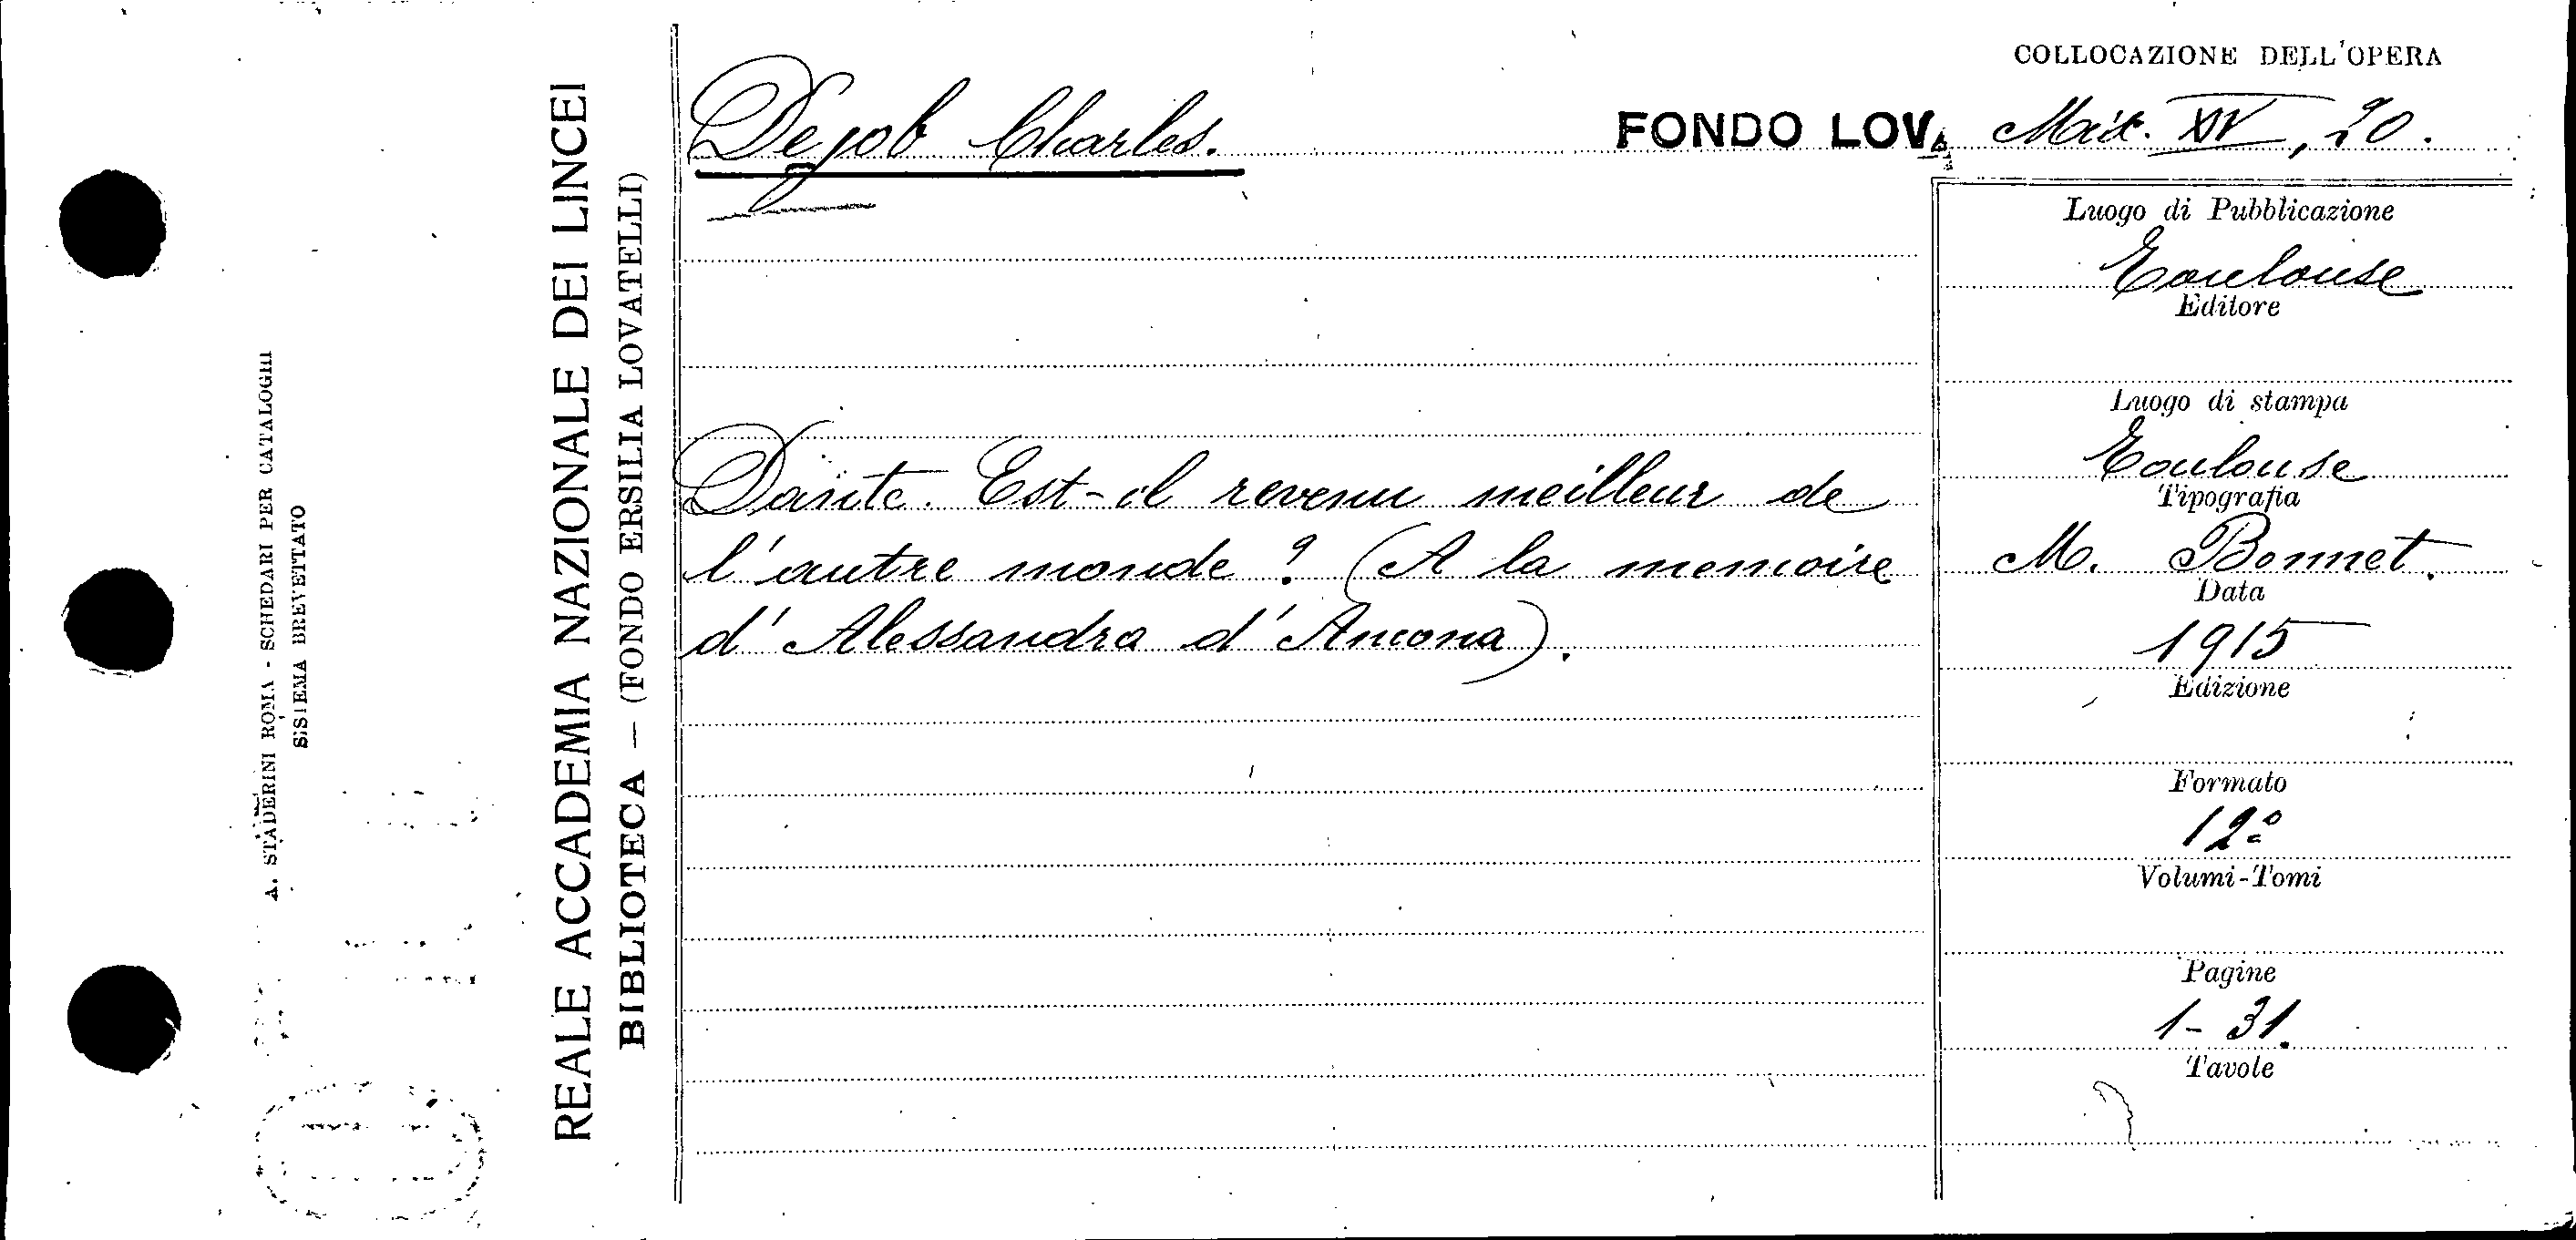 COLLOCAZIONE DELL'OPERA
Dejob Charles.
FONDO LOV. Misc. XV, 20.
REALE ACCADEMIA NAZIONALE DEI LINCEI
BIBLIOTECA — (FONDO ERSILIA LOVATELLI)
A. STADERINI ROMA - SCHEDARI PER CATALOGHI
SISTEMA BREVETTATO
Dante. Est-il revenu meilleur de
l'autre monde? (A la memoire
d'Alessandra d'Ancona).
Luogo di Pubblicazione
Toulouse
Editore
Luogo di stampa
Toulouse
Tipografia
M. Bonnet.
Data
1915
Edizione
Formato
12º
Volumi-Tomi
Pagine
1-31.
Tavole